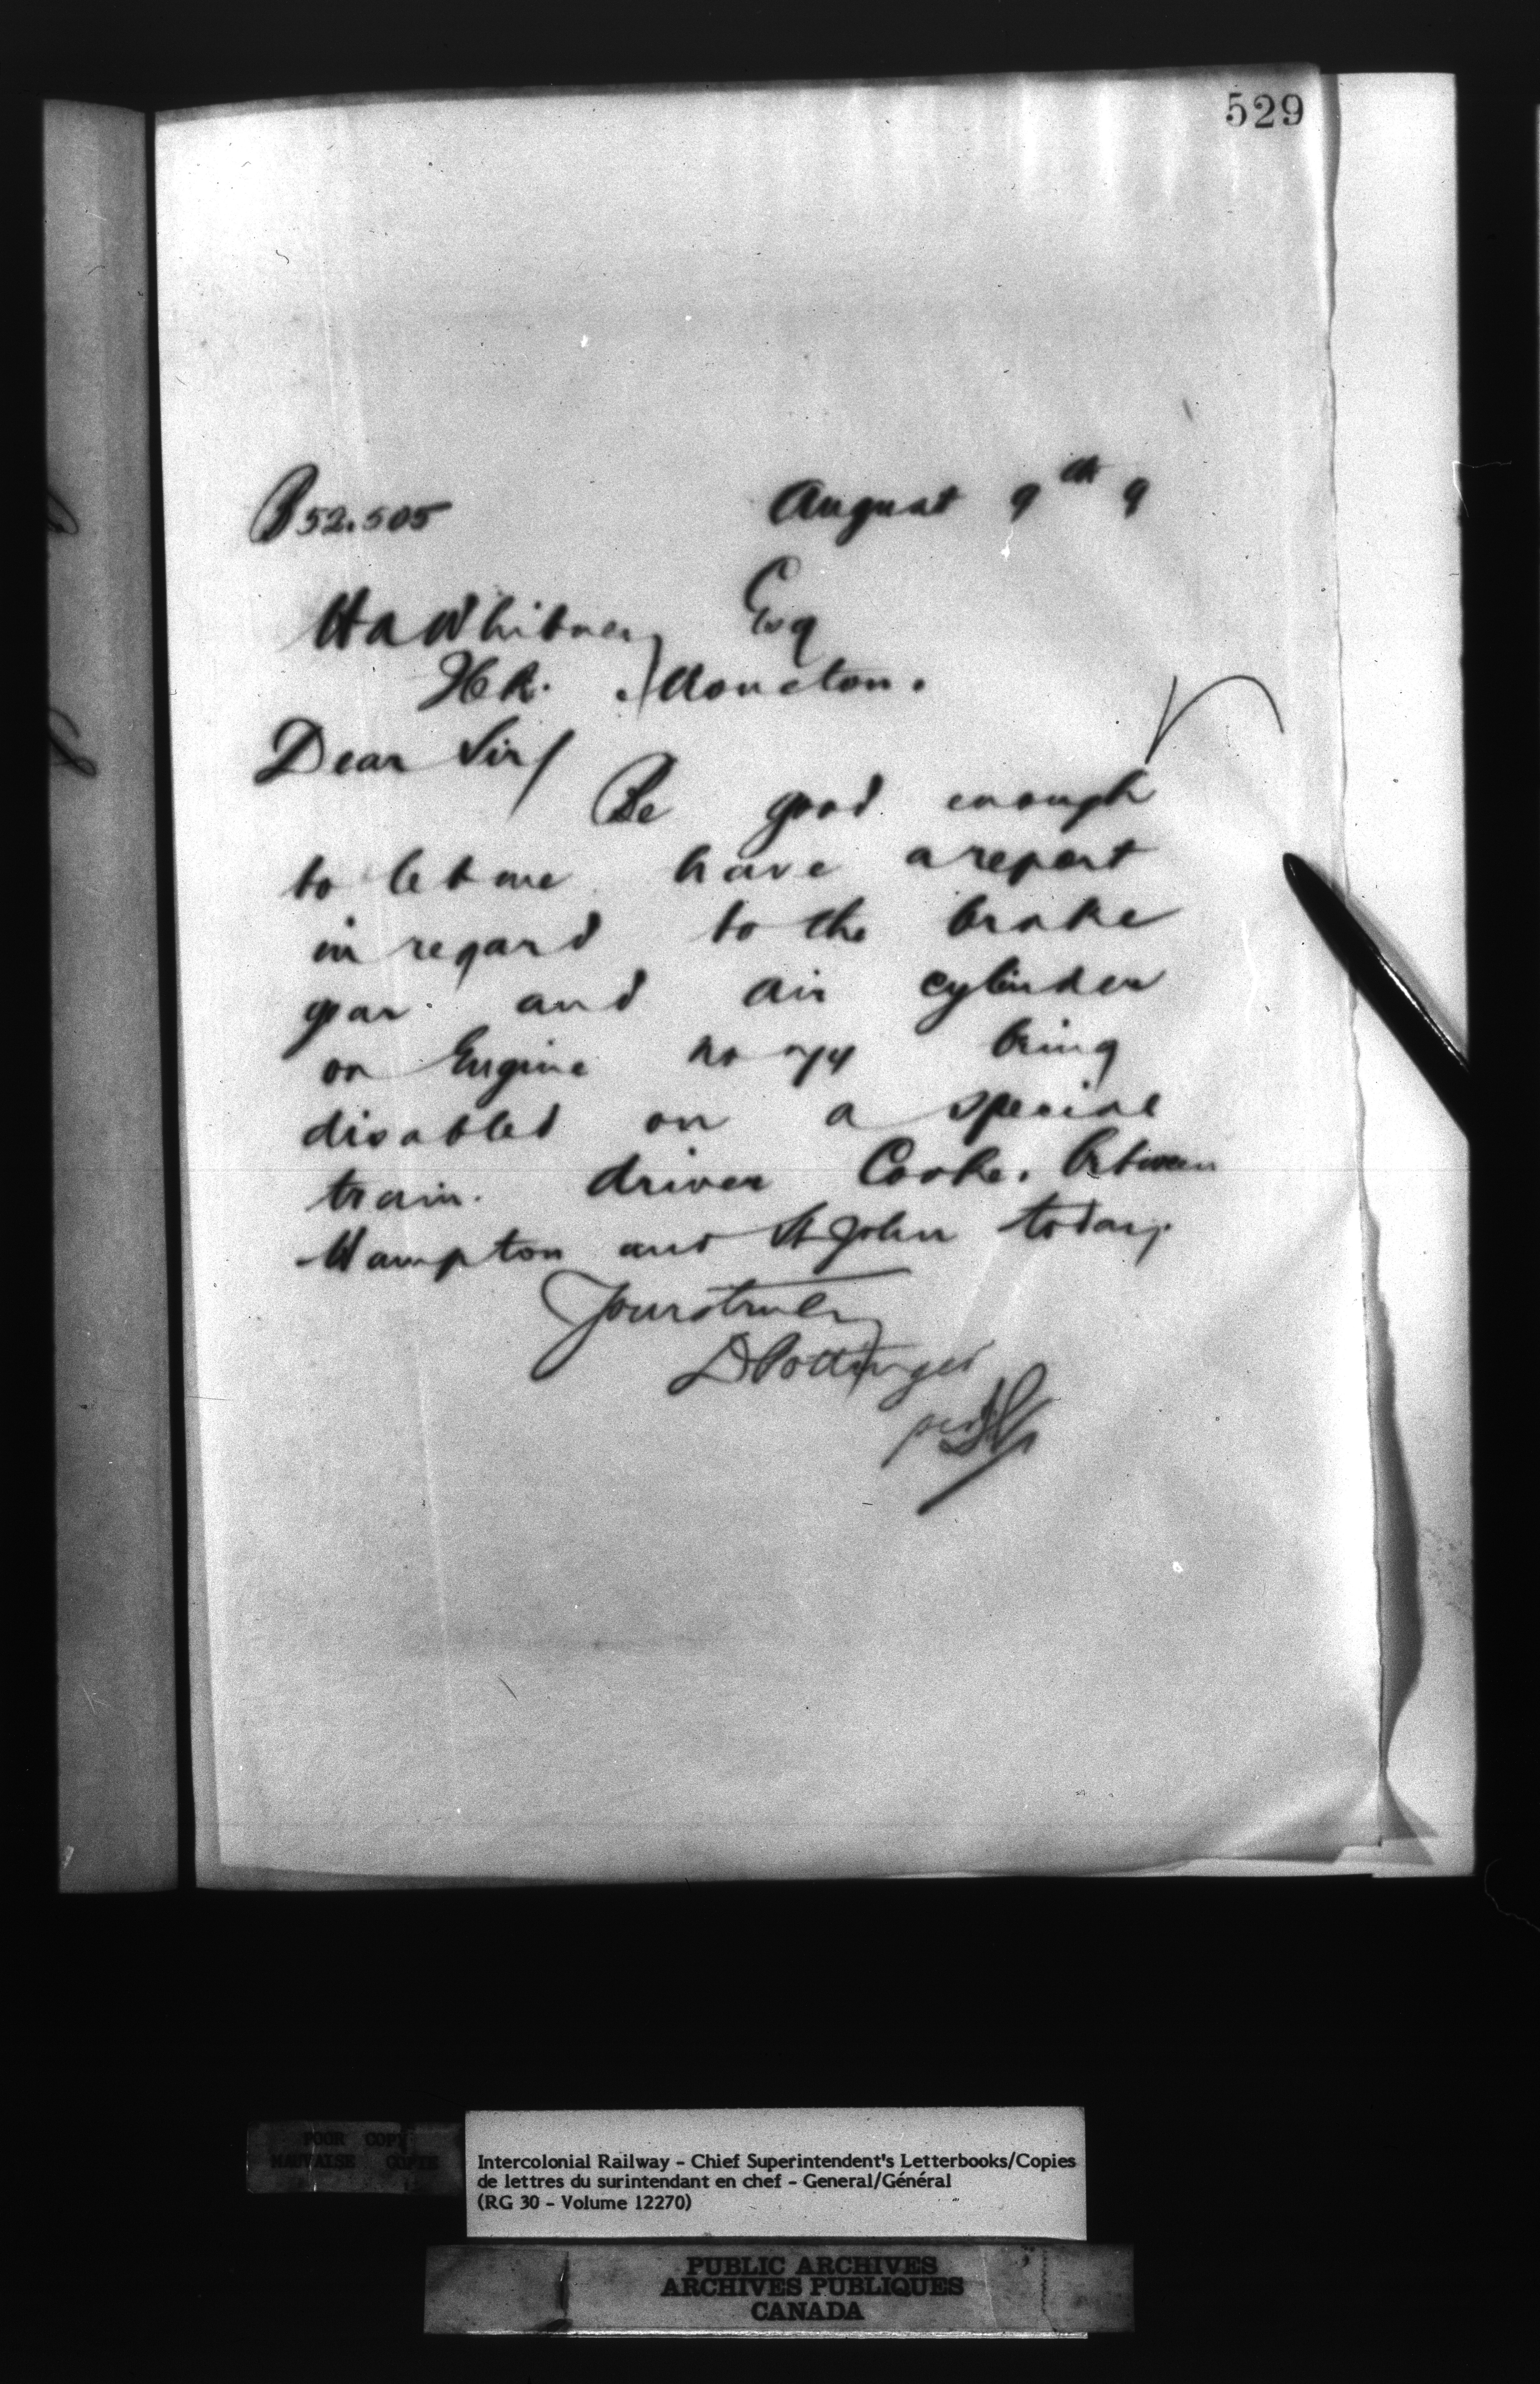 529
B 52.505 August 9th 9
H A Whitney Esq
Moncton.
Dear Sir/
Be good enough
to let me have a report
in regard to the brake
gear and air cylinder
on Engine no being
disabled on a special
train. driver Cooke. between
Hampton and St John today.
Yours truly
D Pottinger
per
POOR COPY
MAUVAISE COPIE
Intercolonial Railway - Chief Superintendent's Letterbooks/Copies
de lettres du surintendant en chef - General/Général
(RG 30 - Volume 12270)
PUBLIC ARCHIVES
ARCHIVES PUBLIQUES
CANADA